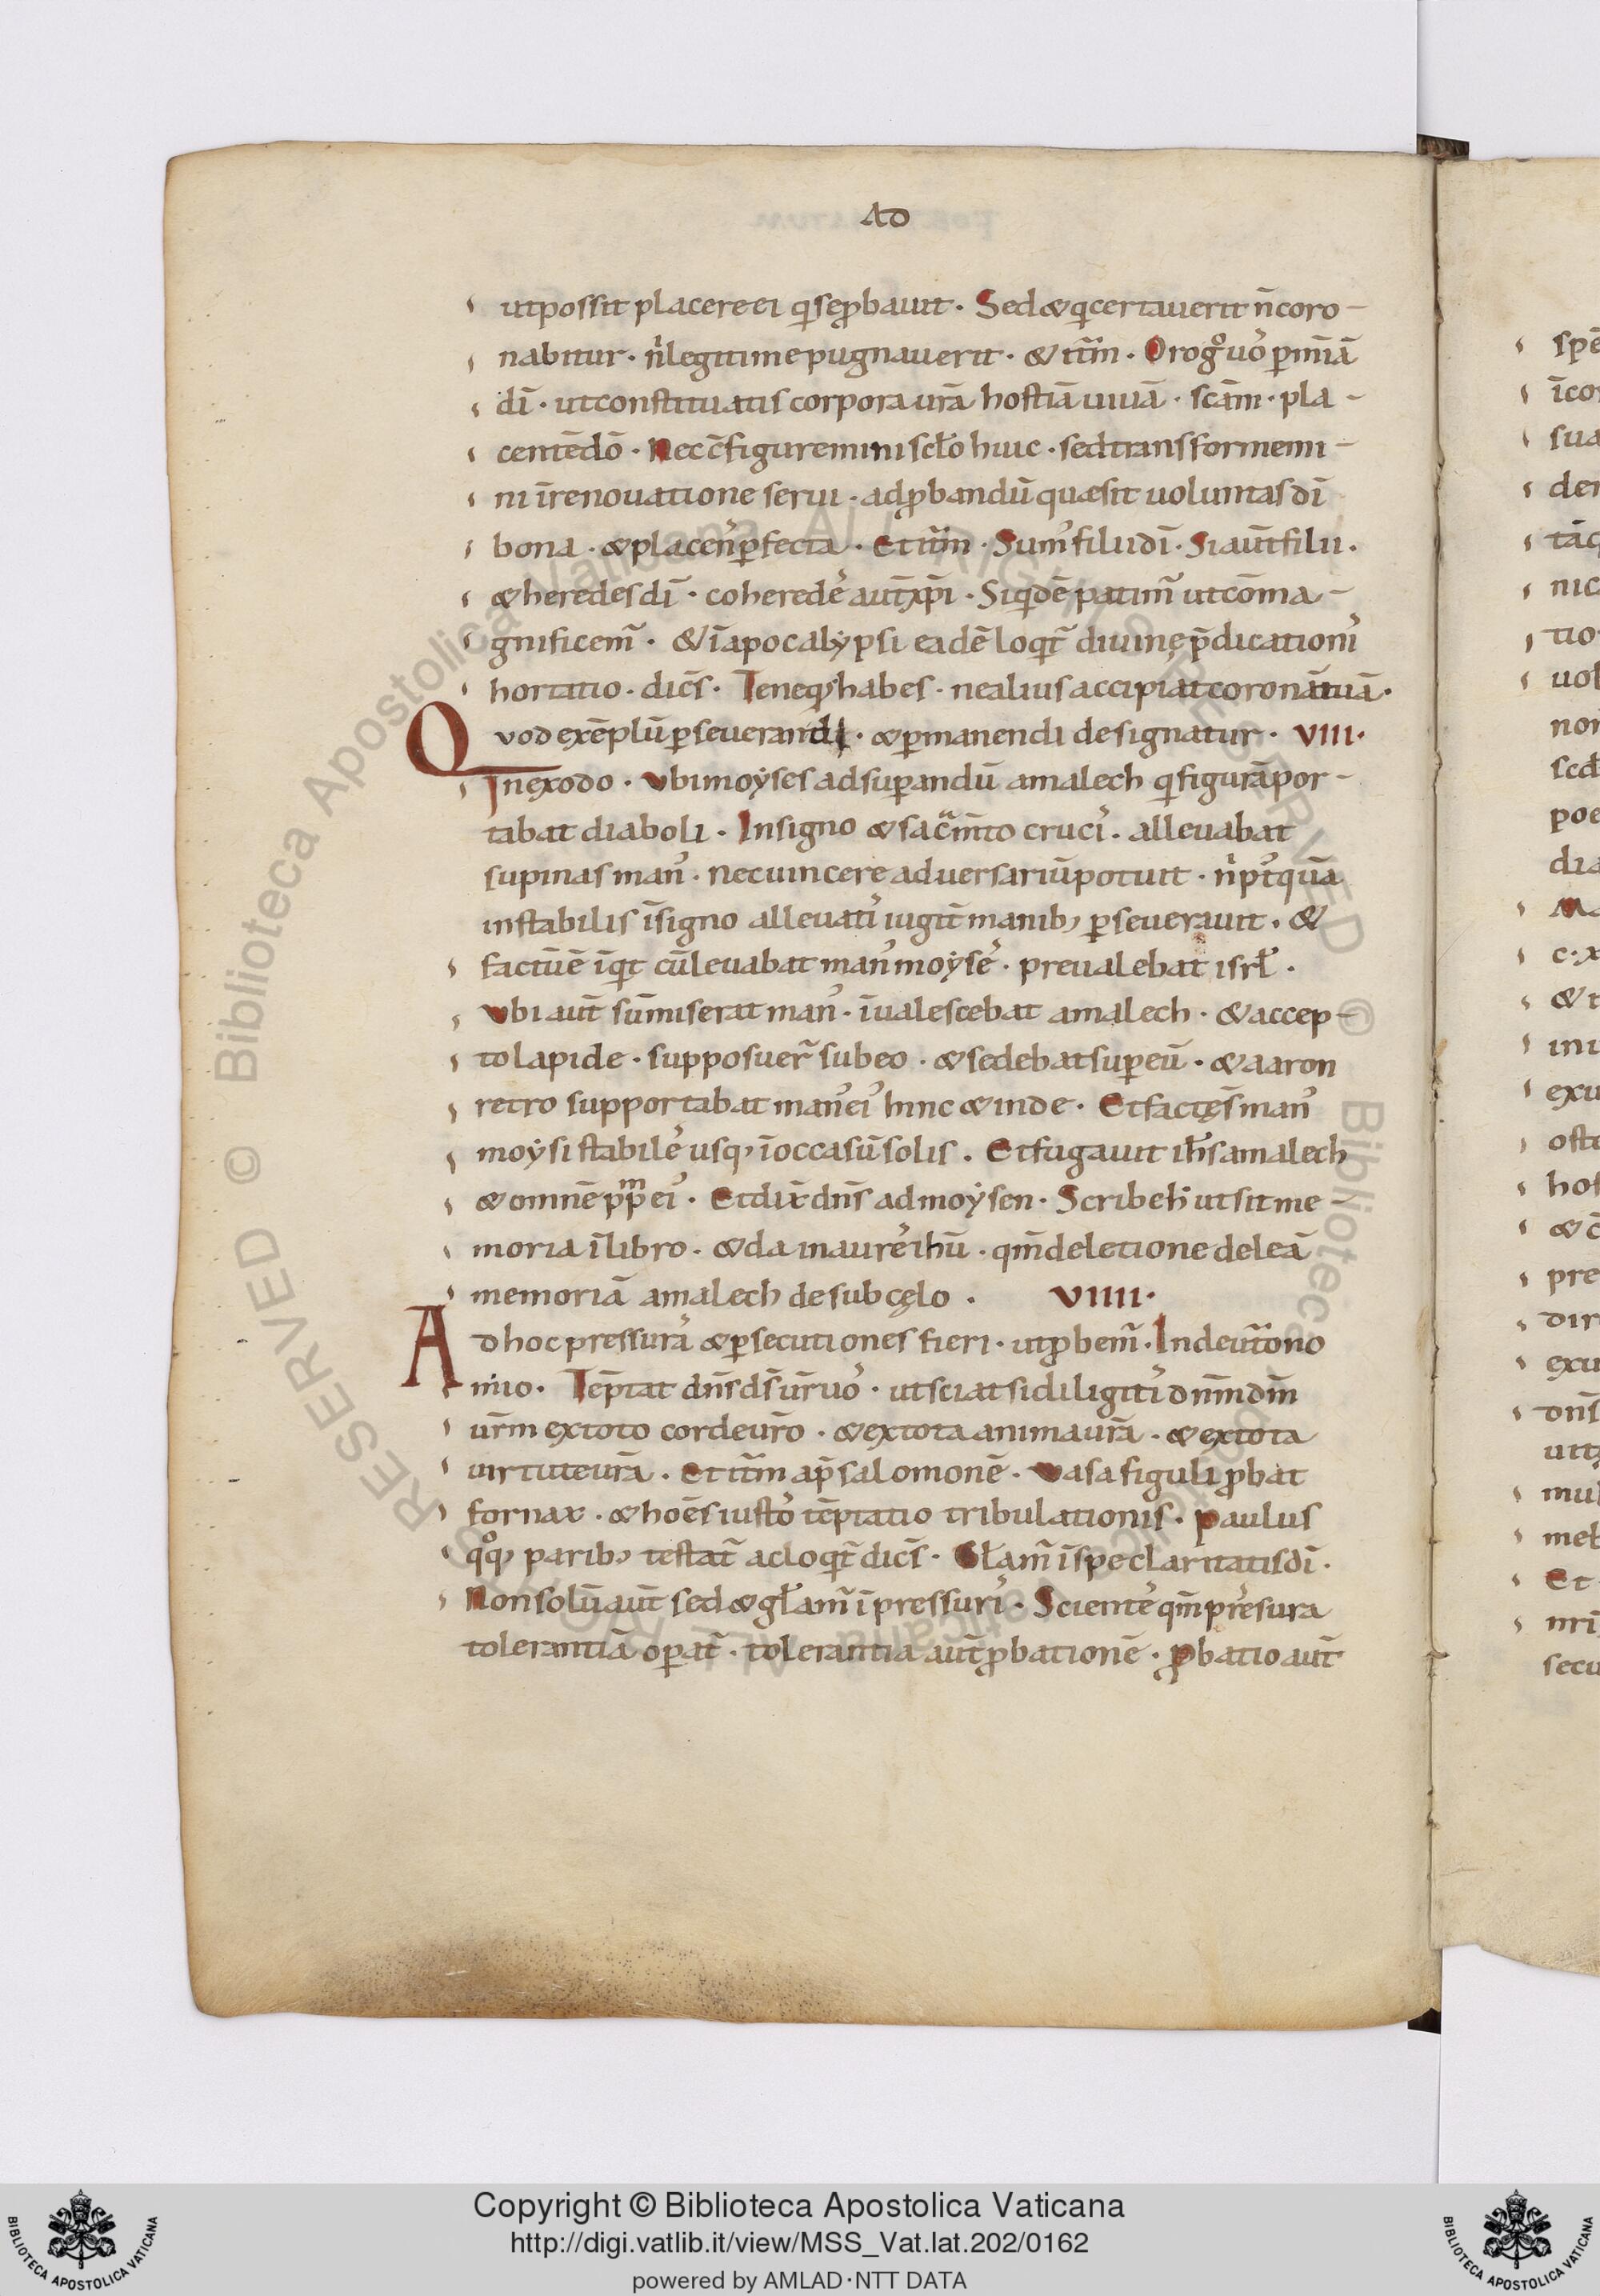 AD
ut possit placere ei q̇ se ꝓbauit · Sed & q̇ certauerit n̄ coro-
nabitur · n̍ legitime pugnauerit · & it̄m · Orog̊ uo᾽ ꝑ mīā
dī · ut constituatis corpora ur̄a hostiā uiuā · sc̄am · pla-
centē dō · Nec c̄figuremini scło huic · sed transformemi-
ni ī renouatione serui · ad ꝓbandū quæ sit uoluntas dī
bona · & placen᾽ ꝑfecta · Et it̄m · Sum᾽ filii dī · Si aūt filii ·
& heredes dī · coherede᾽ aūt xp̄i · Siq̇dē patim̃ ut cōma-
gnificem̃ · & ī apocalẏpsi eadē loqt̃ diuinę p̄dicationi᾽
hortatio · dicēs · Tene q᾽ habes · ne alius accipiat coronā tuā ·
Qvod exēplū ꝑseuerandi · & ꝑmanendi designatur · VIII ·
In exodo · Vbi moẏses ad suꝑandū amalech q̇ figurā por-
tabat diaboli · In signo & sac̃m̄to cruci᾽ · alleuabat
supinas man᾽ · nec uincere aduersariū potuit · n̍ p᾽t quā
in stabilis ī signo alleuati᾽ iugit̄ manib; ꝑseuerauit · &
factū ē īqt cū leuabat man᾽ moẏse᾽ · preualebat isrł ·
Vbi aūt sūmiserat man᾽ · īualescebat amalech · & accep-
to lapide · supposuer̃ sub eo · & sedebat suꝑ eū · & aaron
retro supportabat man᾽ ei᾽ hinc & inde · Et factę s̄ man᾽
moẏsi stabile᾽ usq; ī occasū solis · Et fugauit ih̄s amalech
& omnē ppm ei᾽ · Et dix̄ dn̄s ad moẏsen · Scribe h̄ ut sit me
moria ī libro · & da in aure᾽ ihū · qm̄ deletione deleā
memoriā amalech de sub cęlo · VIIII ·
Ad hoc pressura᾽ & ꝑsecutiones fieri · ut ꝓbem̃ · In deut̄ono
mio · Tēptat dn̄s ds̄ ur̄ uo᾽ · ut sciat si diligiti᾽ dn̄m dm̄
ur̄m ex toto corde ur̄o · & ex tota anima ur̄a · & ex tota
uirtute ur̄a · Et it̄m ap̄ salomonē · Vasa figuli ꝓbat
fornax · & hoēs iusto᾽ tēptatio tribulationis · Paulus
qq̊; parib; testat̃ ac loqt̃ dicēs · Głam̃ ī spe claritatis dī ·
Non solū aūt sed & głam̃ ī pressuri᾽ · Sciente᾽ qm̄ pressura
tolerantiā oꝑat̃ · tolerantia aūt ꝓbationē · ꝓbatio aūt
Copyright © Biblioteca Apostolica Vaticana
http://digi.vatlib.it/view/MSS_Vat.lat.202/0162
powered by AMLAD·NTT DATA